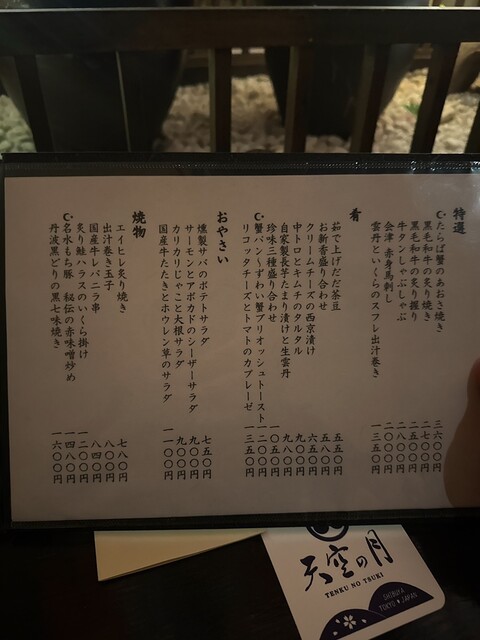 特選
☪たらば蟹のあおさ焼き 三六〇〇円
黒毛和牛の炙り焼き 二七〇〇円
黒毛和牛の炙り握り 二五〇〇円
牛タンしゃぶしゃぶ 二八〇〇円
会津 赤身馬刺し 二一〇〇円
雲丹といくらのスフレ出汁巻き 一三五〇円
肴
茹で上げだだ茶豆 五五〇円
お新香盛り合わせ 五八〇円
クリームチーズの西京漬け 六五〇円
中トロとキムチのタルタル 九〇〇円
自家製長芋たまり漬けと生雲丹 九八〇円
珍味三種盛り合わせ 一〇五〇円
☪蟹パン〜ずわい蟹ブリオッシュトースト 一二〇〇円
リコッタチーズとトマトのカプレーゼ 一三五〇円
おやさい
燻製サバのポテトサラダ 七五〇円
サーモンとアボカドのシーザーサラダ 九〇〇円
カリカリじゃこと大根サラダ 九〇〇円
国産牛たたきとホウレン草のサラダ 一一〇〇円
焼物
エイヒレ炙り焼き 七八〇円
出汁巻き玉子 八〇〇円
国産牛レバニラ串 八四〇円
炙り鮭ハラスのいくら掛け 一二〇〇円
☪名水もち豚 秘伝の赤味噌炒め 一四八〇円
丹波黒どりの黒七味焼き 一六〇〇円
天空の月
TENKU NO TSUKI
SHIBUYA
TOKYO JAPAN